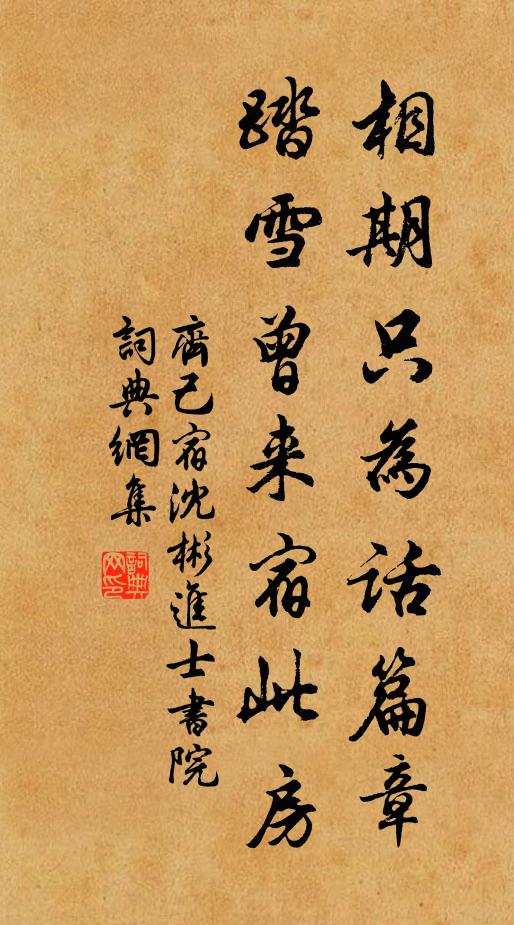 相期只為話篇章
踏雪曾来宿此房
齊己宿沈彬進士書院
詞典網集
詞典网印